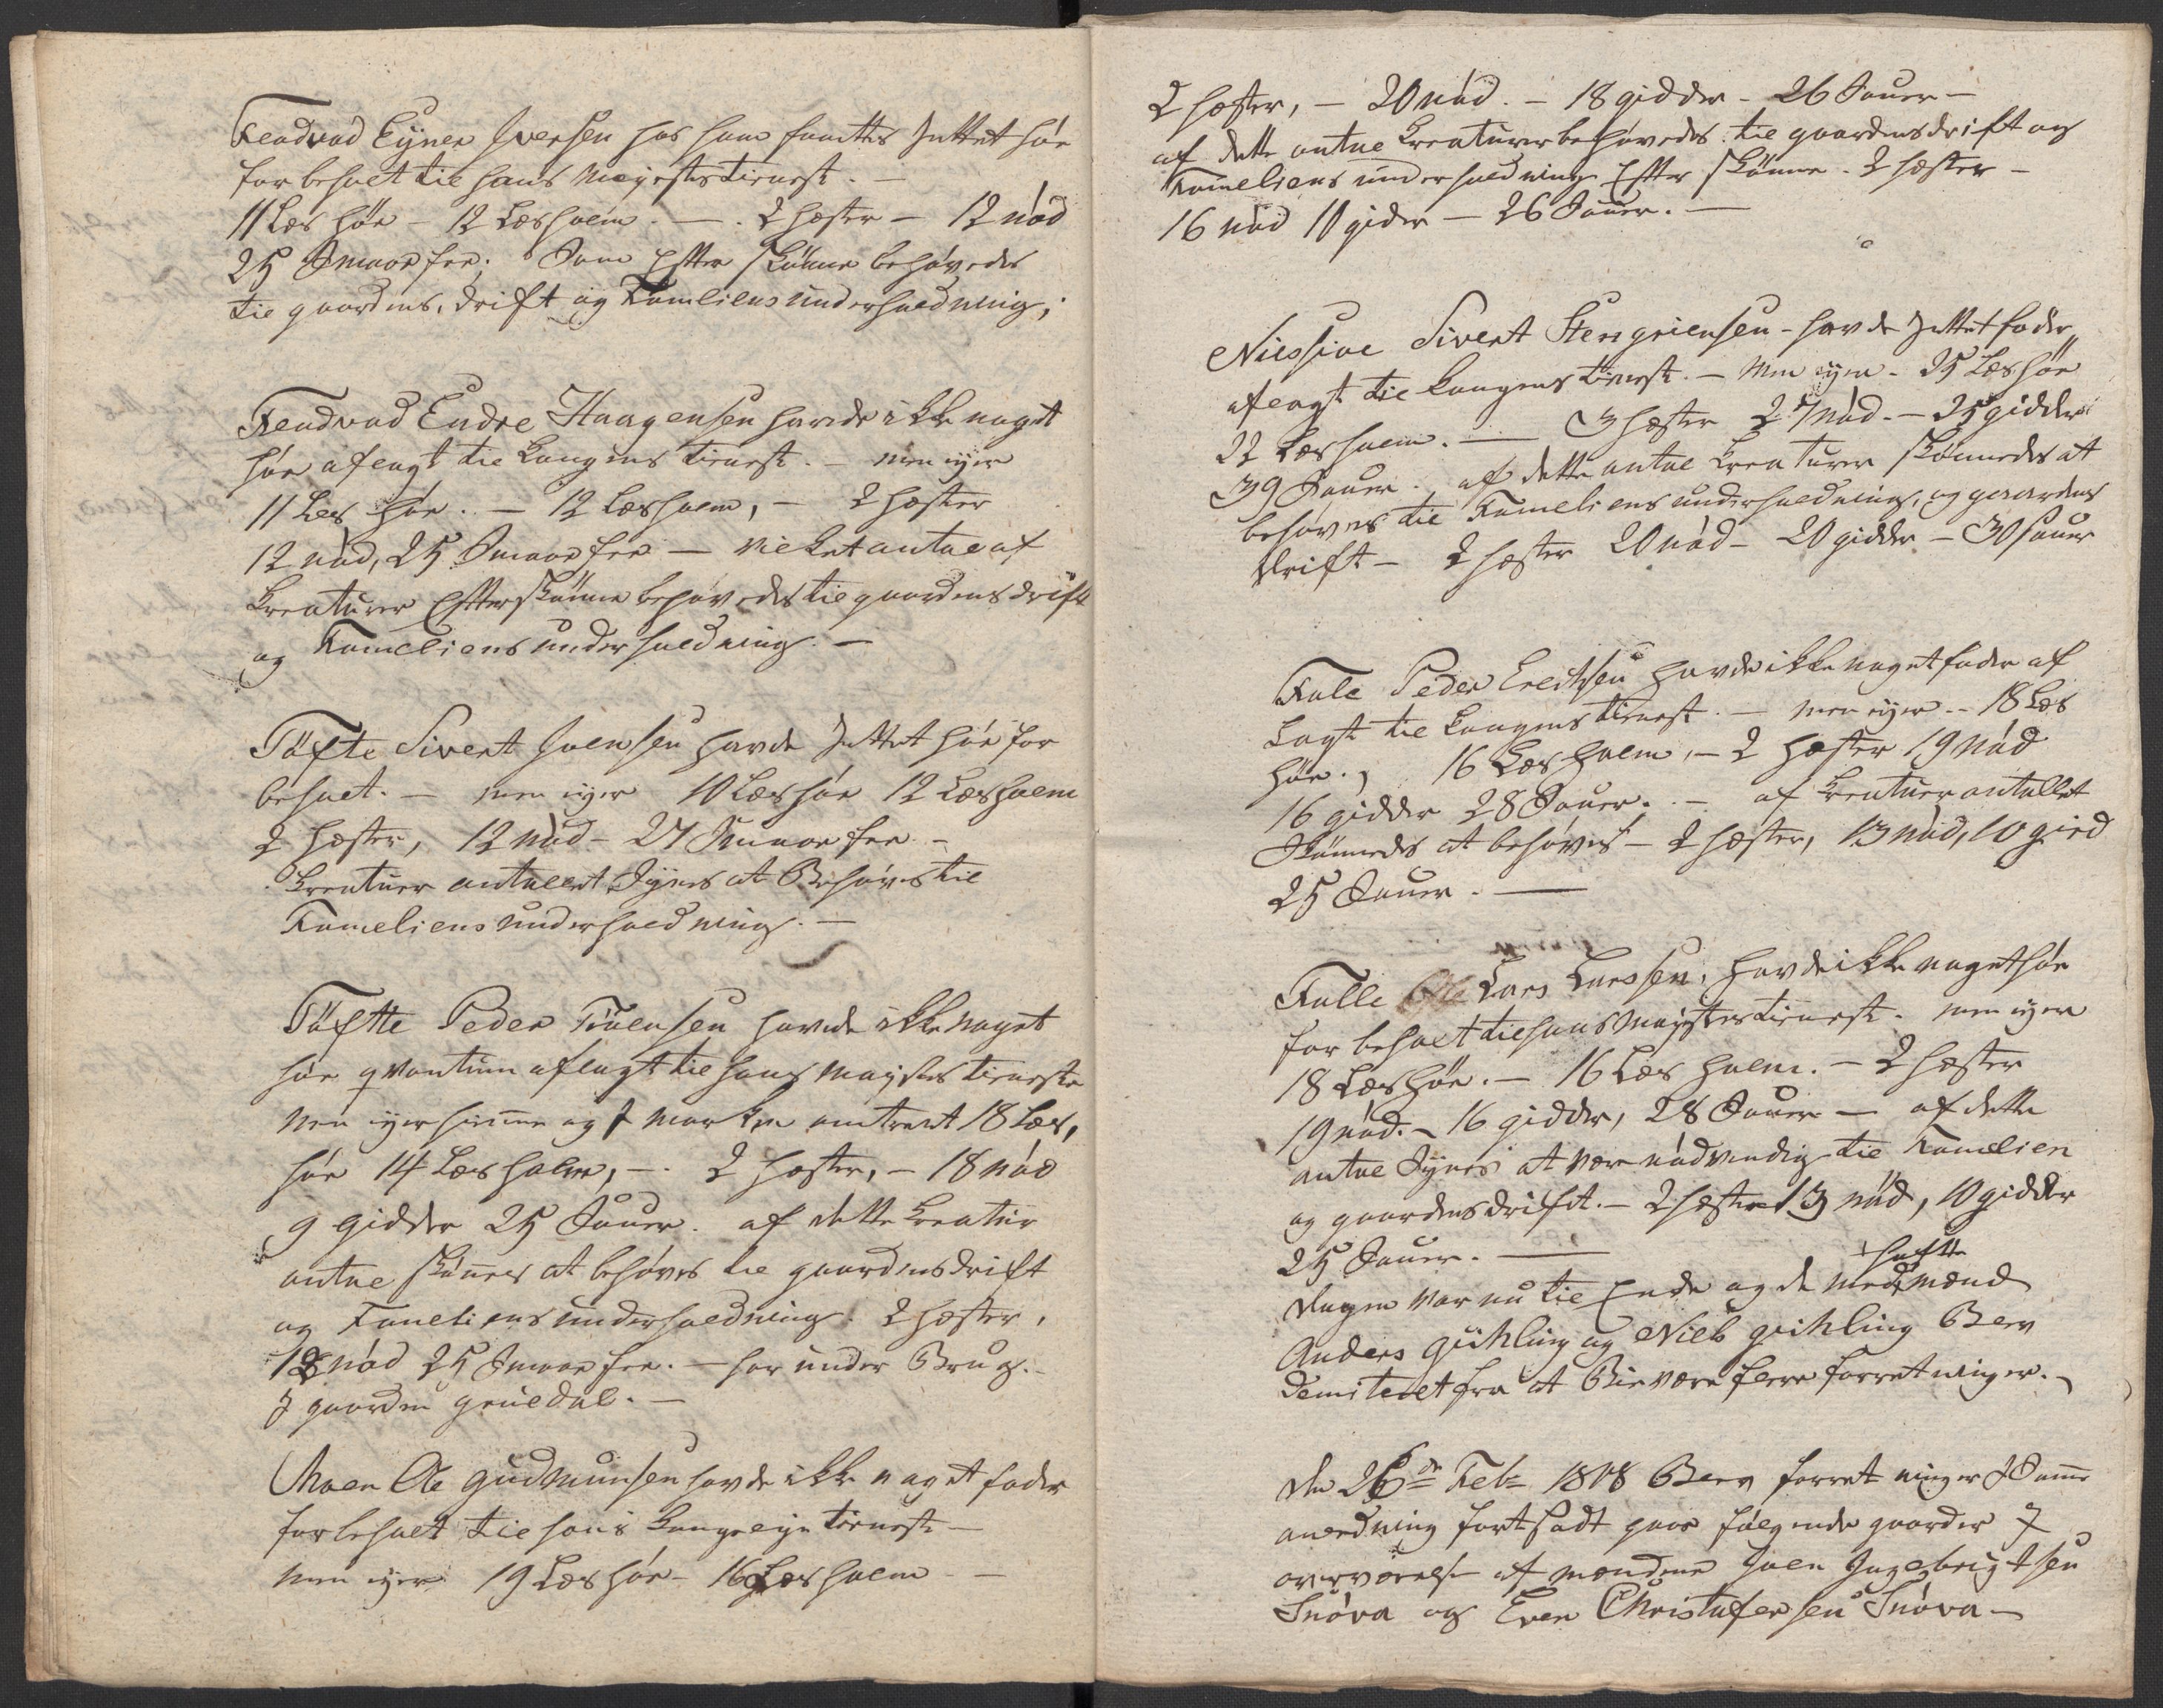 Fendvod Eÿner Iversen hos ham fantes Intet höe
for beholt til hans Mayestes tienest. —
11 Læs höe — 12 Læs halm. — . 2 hæster — 12 nöd
25 Smaae fee; Som Efter skiönne behövedes
til gaardens, drift og Familiens underholdning;
Fendvod Endre Haagensen havde ikke noget
höe aflagt til Kongens tienest. — men ejer
11 Læs höe. — 12 Læs halm, — 2 hæster
12 nöd, 25 Smaae fee — vilket antal af
Kreaturer Efter skiönne behövedes til gaardens drift
og Fameliens underholdning. —
Töfte Sivert Joensen havde Intet höe for
beholt. — men ejer 10 Læs höe 12 Læs halm
2 hæster, 12 nöd — 27 Smaae fee —
Kreatuer antallet Sÿnes at Behöves til
Fameliens underholdning. —
Töftte Peder Siversen havde ikke noget
höe qvantum aflagt til hans Mayestes tieneste
men ejer hieme og I marken omtrent 18 Læs,
höe 14 Læs halm, — . 2 hæster, — 18 nöd
9 gidder 25 Sauer. af dette Kreatur
antal skiönnes at behöves til gaardens drift
og Fameliens underholdning. 2 hæster,
18 nöd 25 Smaae fee. — har under Brug. —
I gaarden gruedal. —
Moen Ole Gudmunsen havde ikke noget foder
forbeholt til hans Kongelige tieneste —
men ejer 19 Læs höe — 16 Læs halm —
2 hæster, — 20 nöd. — 18 gidder — 26 Sauer —
af dette antal Kreaturer behövedes til gaardens drift og
Fameliens underholdning Efter skiönne. 2 hæster —
16 nöd 10 gider — 26 Sauer. —
Sivert Stengriensen — havde Intet foder
aflagt til Kongens tienest. — Men ejer — 25 Læs höe
22 Læs halm. — 3 hæster 27 nöd. — 25 gidder
39 Sauer. af dette antal Kreaturer skiönnedes at
behöves til Fameliens underholdning, og gaardens
drift — 2 hæster 20 nöd — 20 gidder — 30 sauer
Fale Peder Erichsen havde ikke noget foder af
Lagt til Kongens tienest. — men ejer — 18 Læs
höe., 16 Læs halm, — 2 hæster 19 nöd
16 gidder 28 Sauer. — af Kreatuer antallet
Skiönnedes at behöves — 2 hæster, 13 nöd, 10 gied
25 Sauer. —
Falle Lars Larssen, havde ikke noget höe
for beholt til hans Mayestes tienest. men ejer
18 Læs höe. — 16 Læs halm. — 2 hæster
19 nöd. — 16 gidder, 28 Sauer — af dette
antal Sÿnes at være nödvendig til Familien
og gaardens drift. — 2 hæster 13 nöd, 10 gidder
25 Sauer. —
hafte
Dagen var nu til Ende og de med mænd
Anders giihling og Niels giihling Blev
demiteret fra at Bivære flere forretninger. —
den 26de Feb: 1808 Blev forretninger I Samme
anledning fortsadt paa fölgende gaarder I
overværelse af mændene Joen Ingebrigtsen
Snöva og Even Christofersen Snöva —